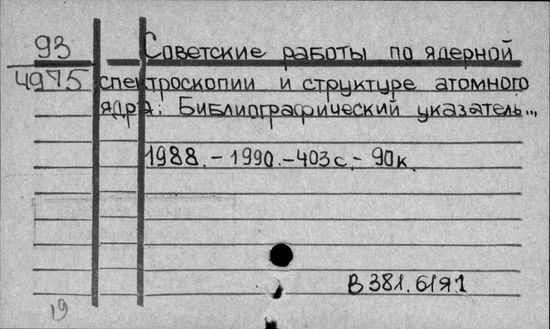 93
4975
Советские работы по ядерной
спектроскопии и структуре атомного
ядра: Библиографический указатель...
1988. - 1990. - 403 с. - 90 к.
В 381.6я91
19